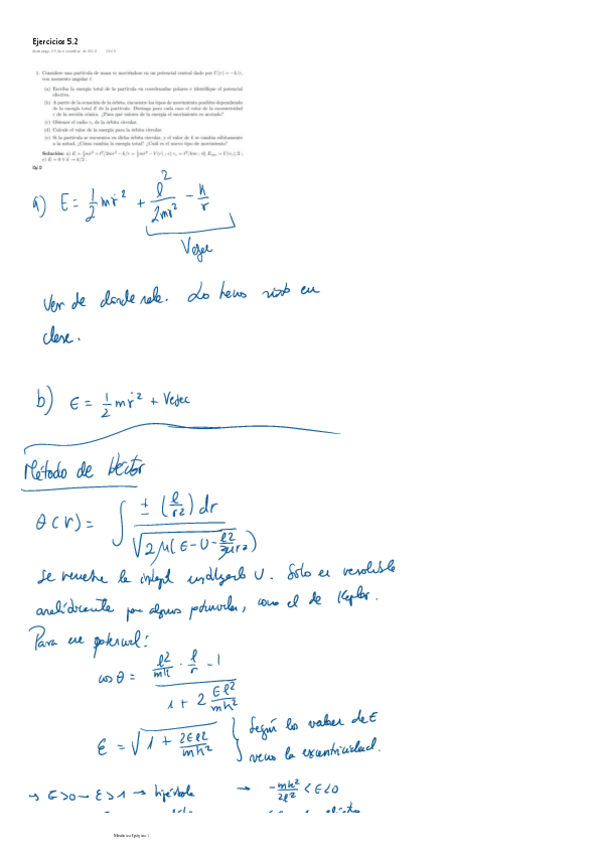 Ejercicios 5.2
1. Considere una partícula de masa m moviéndose en un potencial central dado por U(r) = −k/r,
con momento angular ℓ.
(a) Escriba la energía total de la partícula en coordenadas polares e identifique el potencial
efectivo.
(b) A partir de la ecuación de la órbita, encuentre los tipos de movimiento posibles dependiendo
de la energía total E de la partícula. Distinga para cada caso el valor de la excentricidad
ε de la sección cónica. ¿Para qué valores de la energía el movimiento es acotado?
(c) Obtener el radio rₒ de la órbita circular.
(d) Calcule el valor de la energía para la órbita circular.
(e) Si la partícula se encuentra en dicha órbita circular, y el valor de k se cambia súbitamente
a la mitad, ¿Cómo cambia la energía total? ¿Cuál es el nuevo tipo de movimiento?
a) E = 1/2 mṙ² + ℓ²/2mr² − k/r
Vefec
Ver de donde sale. Lo hemos visto en
clase.
b) E = 1/2 mṙ² + Vefec
Método de Héctor
θ(r) = ∫ ± (ℓ/r²) dr / √2μ(E−U−ℓ²/2μr²)
Se resuelve la integral U. Solo es resoluble
analíticamente por algunos potenciales, como el de Kepler.
Para ese potencial:
cos θ = ℓ²/mk · 1/r − 1 / 1 + 2 Eℓ²/mk²
ε = √1 + 2Eℓ²/mk² } Según los valores de E
vemos la excentricidad.
→ E>0 → ε>1 → hipérbola → −mk²/2ℓ² < E < 0